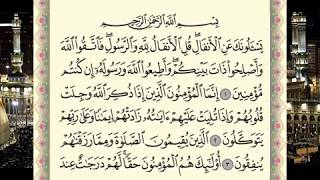 بِسْمِ ٱللَّهِ ٱلرَّحْمَٰنِ ٱلرَّحِيمِ
يَسْـَٔلُونَكَ عَنِ ٱلْأَنفَالِ ۖ قُلِ ٱلْأَنفَالُ لِلَّهِ وَٱلرَّسُولِ ۖ فَٱتَّقُوا۟ ٱللَّهَ
وَأَصْلِحُوا۟ ذَاتَ بَيْنِكُمْ ۖ وَأَطِيعُوا۟ ٱللَّهَ وَرَسُولَهُۥٓ إِن كُنتُم
مُّؤْمِنِينَ ١ إِنَّمَا ٱلْمُؤْمِنُونَ ٱلَّذِينَ إِذَا ذُكِرَ ٱللَّهُ وَجِلَتْ
قُلُوبُهُمْ وَإِذَا تُلِيَتْ عَلَيْهِمْ ءَايَٰتُهُۥ زَادَتْهُمْ إِيمَٰنًا وَعَلَىٰ رَبِّهِمْ
يَتَوَكَّلُونَ ٢ ٱلَّذِينَ يُقِيمُونَ ٱلصَّلَوٰةَ وَمِمَّا رَزَقْنَٰهُمْ
يُنفِقُونَ ٣ أُو۟لَٰٓئِكَ هُمُ ٱلْمُؤْمِنُونَ حَقًّا ۚ لَّهُمْ دَرَجَٰتٌ عِندَ